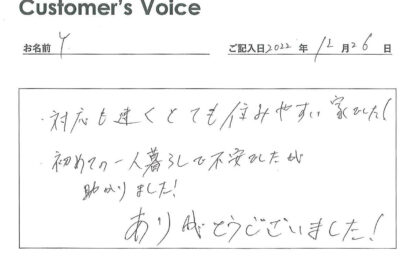 Customer's Voice
お名前 Y ご記入日2022年 12月26日
・対応も速くとても住みやすい家でした!
・初めての一人暮らしで不安でしたが
助かりました!
ありがとうございました!